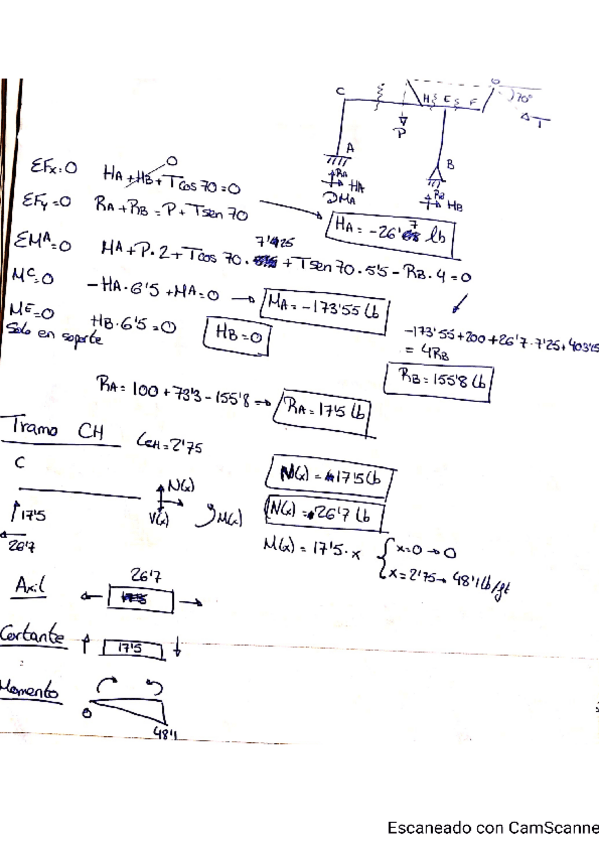 C
H
E
F
70°
T
P
A
B
RA
HA
MA
RB
HB
ΣFx=0 HA+HB+Tcos70=0
0
ΣFy=0 RA+RB=P+Tsen70
HA=-26'7 lb
ΣMA=0 MA+P·2+Tcos70·7'25+Tsen70·5'5-RB·4=0
MC=0 -HA·6'5+MA=0 → MA=-173'55 lb
ME=0 HB·6'5=0 HB=0
Solo en soporte
-173'55+200+26'7·7'25+403'15
=4RB
RB=155'8 lb
RA=100+73'3-155'8 → RA=17'5 lb
Tramo CH LCH=2'75
C
N(x)
V(x)
M(x)
17'5
26'7
N(x)=17'5 lb
N(x)=26'7 lb
M(x)=17'5·x { x=0→0
x=2'75→48'1 lb/gt
Axil
26'7
Cortante 17'5
Momento
0
48'1
Escaneado con CamScanne